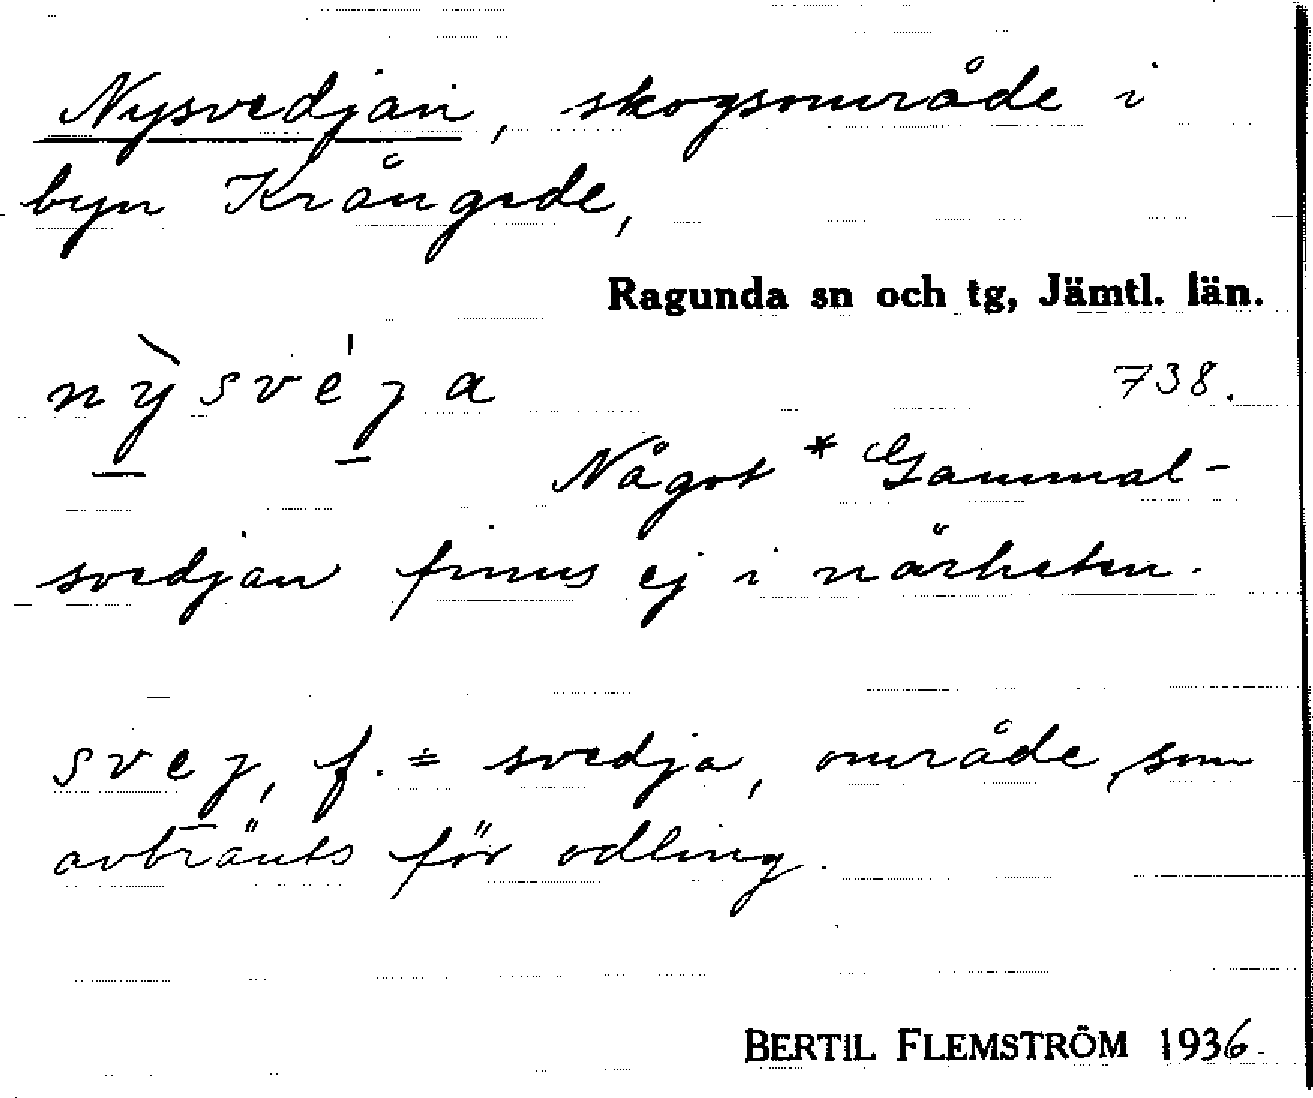 Nysvedjan, skogsområde i
byn Krångede,
Ragunda sn och tg, Jämtl. län.
nỳsvéȷa 738.
Något *Gammal-
svedjan finns ej i närheten.
sveȷ, f. = svedja, område, som
avbränts för odling.
BERTIL FLEMSTRÖM 1936.